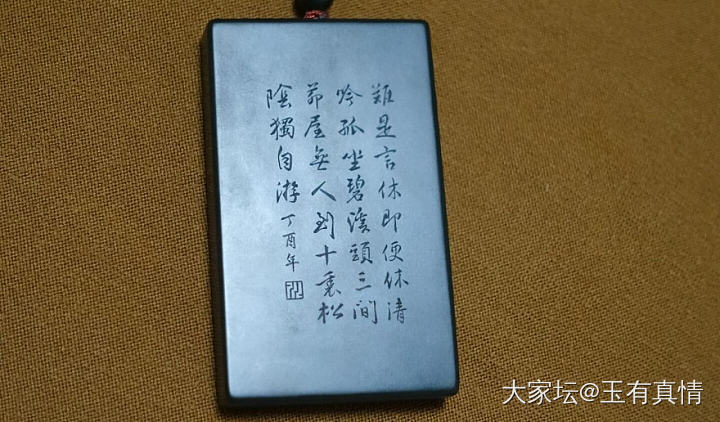 難是言休即便休清
吟孤坐碧溪頭三間
茆屋無人到十裏松
陰獨自游
丁酉年
大家坛@玉有真情